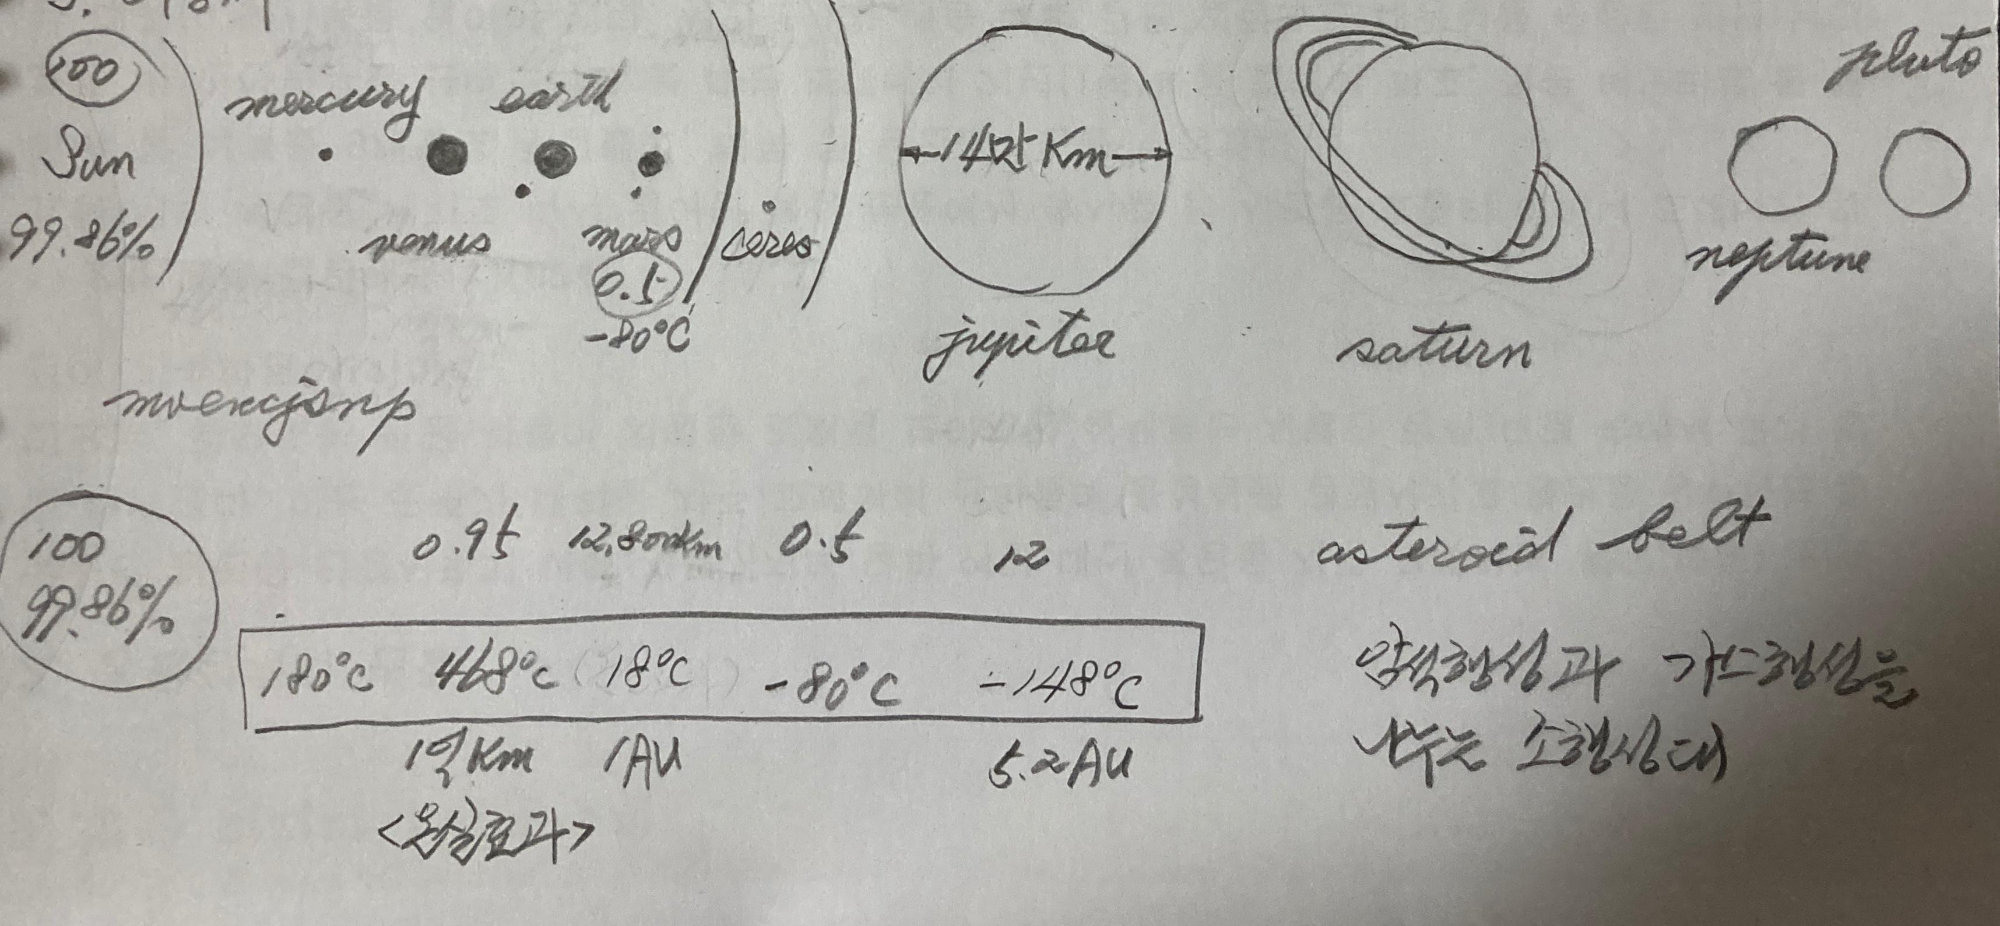 100
Sun
99.86%
mercury
earth
venus
mars
0.5
-80°C
ceres
jupiter
saturn
pluto
neptune
mvemcjsnp
100
99.86%
0.95 12,800km 0.5 12
180°C 468°C 18°C -80°C -148°C
1억Km 1AU 5.2AU
<온실효과>
asteroid belt
암석행성과 가스행성을
나누는 소행성대